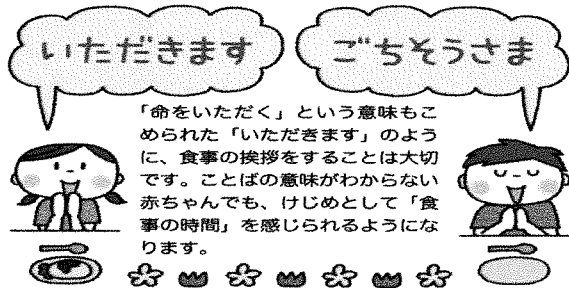 いただきます
ごちそうさま
「命をいただく」という意味もこ
められた「いただきます」のよう
に、食事の挨拶をすることは大切
です。ことばの意味がわからない
赤ちゃんでも、けじめとして「食
事の時間」を感じられるようにな
ります。